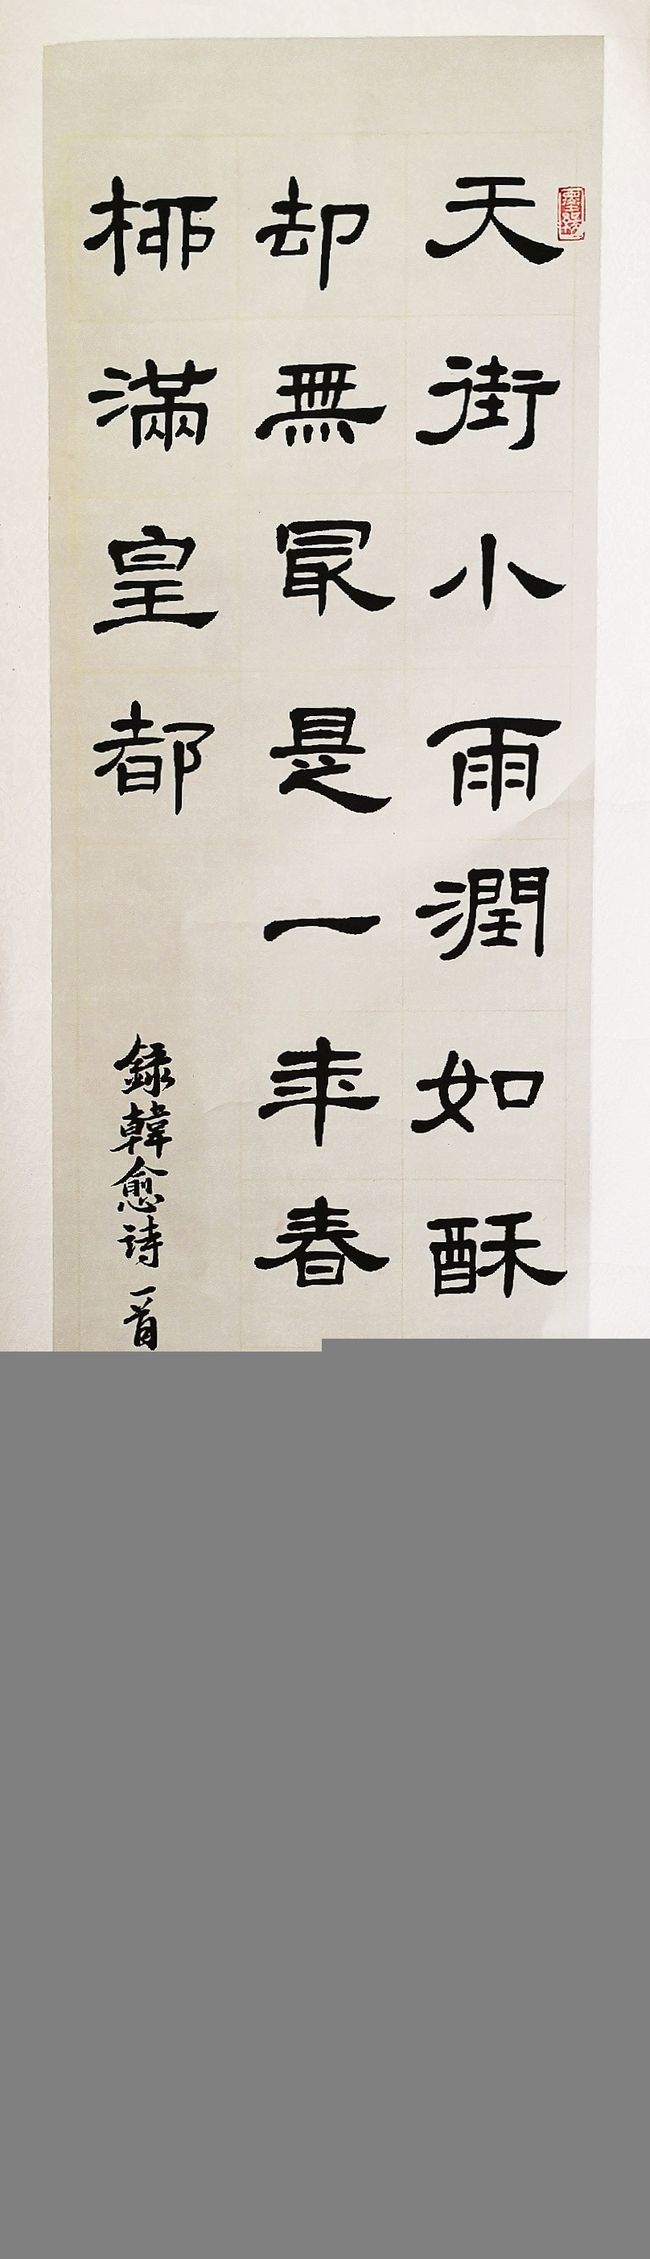 天街小雨潤如酥
却無冣是一年春
栁滿皇都
録韓愈詩一首